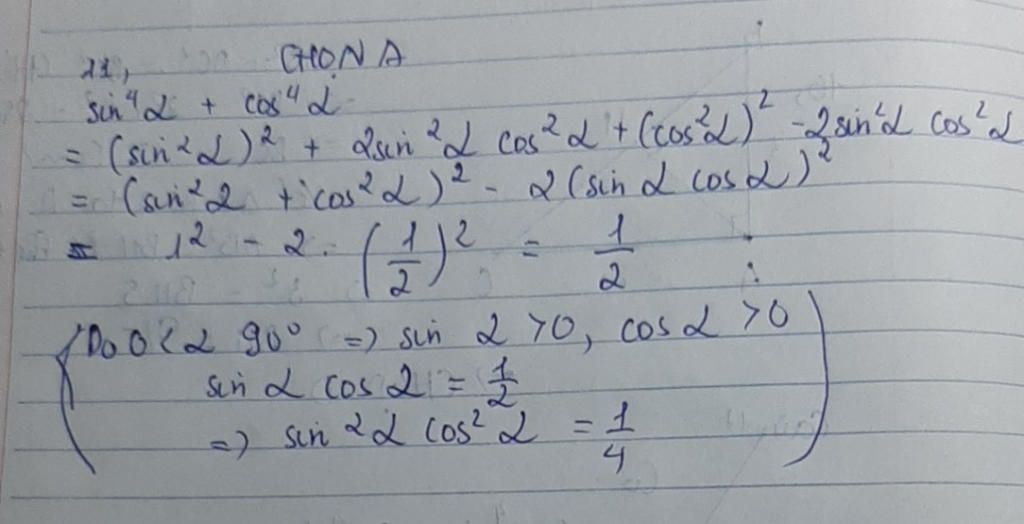 11, CHỌN A
sin⁴α + cos⁴α
= (sin²α)² + 2sin²α cos²α + (cos²α)² - 2sin²α cos²α
= (sin²α + cos²α)² - 2(sin α cos α)²
= 1² - 2. (1/2)² = 1/2
(Do 0 < α 90° => sin α > 0, cos α > 0
sin α cos α = 1/2
=> sin²α cos²α = 1/4)